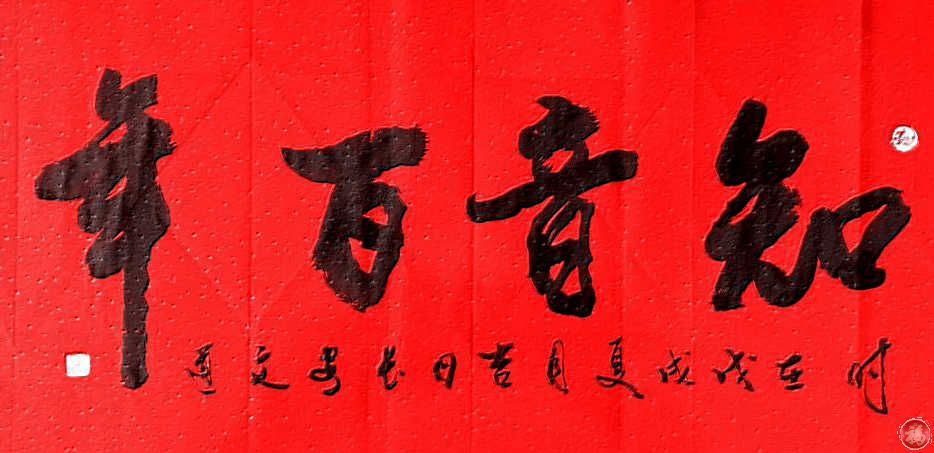 知音百年
时在戊戌夏月吉日长安文道